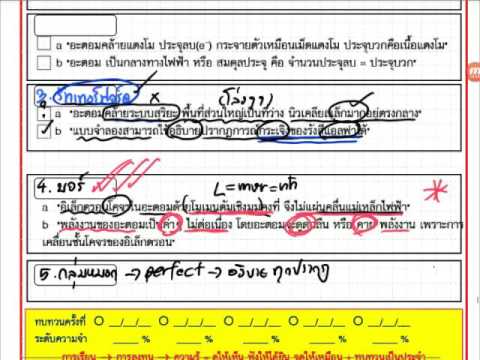 a "อะตอมคล้ายแตงโม ประจุลบ(e⁻) กระจายตัวเหมือนเม็ดแตงโม ประจุบวกคือเนื้อแตงโม"
b "อะตอม เป็นกลางทางไฟฟ้า หรือ สมดุลประจุ คือ จำนวนประจุลบ = ประจุบวก"
3. รัทเทอร์ฟอร์ด × (โล่งๆ)
a "อะตอมคล้ายระบบสุริยะ พื้นที่ส่วนใหญ่เป็นที่ว่าง นิวเคลียสเล็กมากอยู่ตรงกลาง"
b "แบบจำลองสามารถใช้อธิบายปรากฏการณ์กระเจิงของรังสีแอลฟาได้"
4. บอร์ L=mvr=nħ
a "อิเล็กตรอนโคจรในอะตอมด้วยโมเมนตัมเชิงมุมคงที่ จึงไม่แผ่คลื่นแม่เหล็กไฟฟ้า"
b "พลังงานของอะตอมเป็นค่าไม่ต่อเนื่อง โดยอะตอมจะดูดกลืน หรือ คาย พลังงาน เพราะการ
เคลื่อนชั้นโคจรของอิเล็กตรอน"
5. กลุ่มหมอก → perfect → อธิบายทุกปรากฏ
ทบทวนครั้งที่ __/__/__ __/__/__ __/__/__ __/__/__ __/__/__
ระดับความจำ ____ % ____ % ____ % ____ % ____ %
การเรียน → การลงทุน → ความรู้ = ดูให้เห็น ฟังให้ได้ยิน จดให้เหมือน + ทบทวนเป็นประจำ